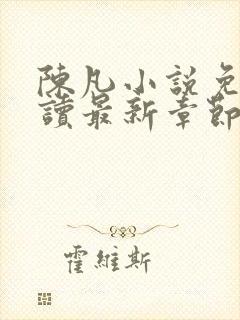 陳凡小說免
讀最新章節
霍維斯